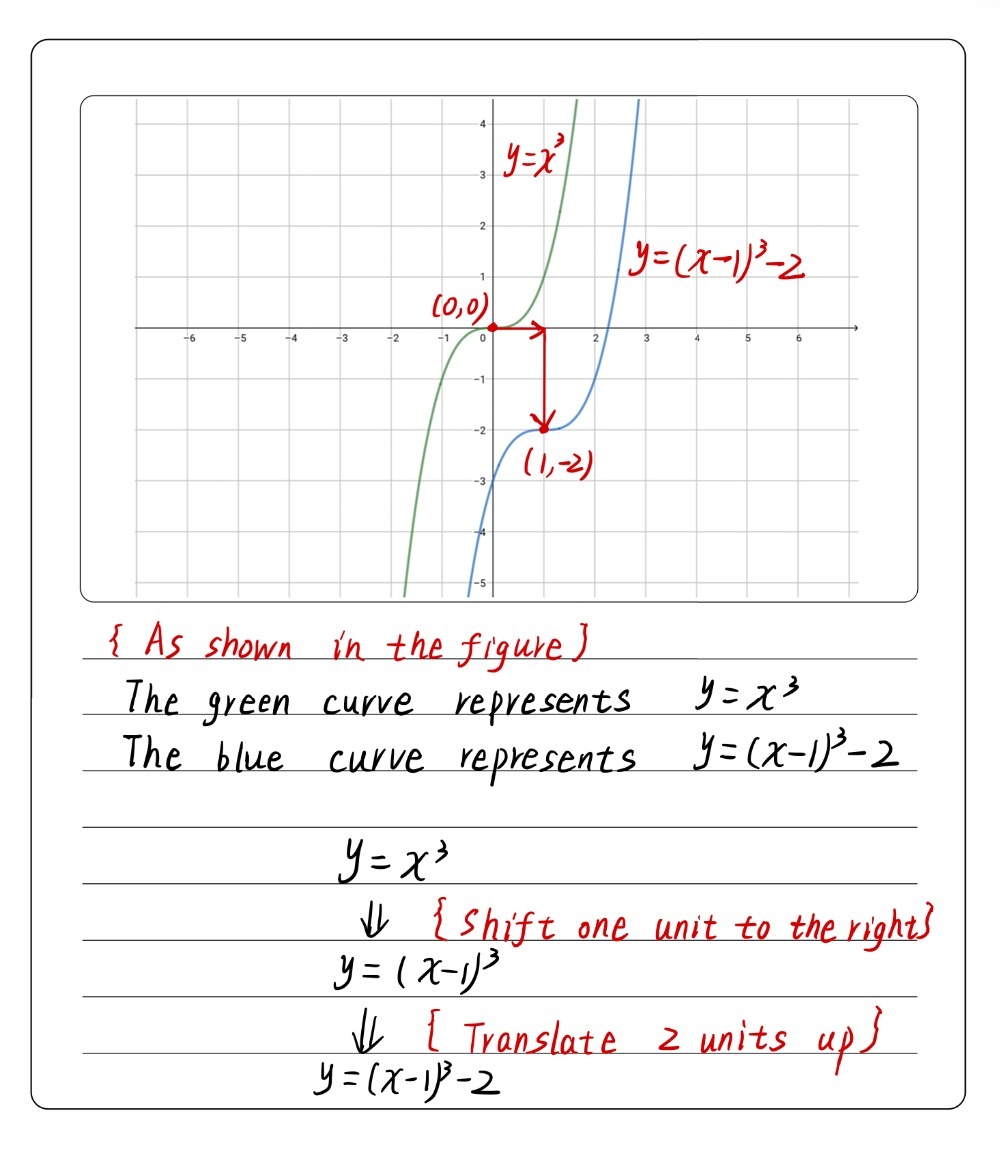 4
y=x³
3
2
y=(x-1)³-2
1
(0,0)
-6 -5 -4 -3 -2 -1 0 2 3 4 5 6
-1
-2
(1,-2)
-3
-4
-5
{ As shown in the figure }
The green curve represents y=x³
The blue curve represents y=(x-1)³-2
y=x³
⇓ { Shift one unit to the right }
y=(x-1)³
⇓ { Translate 2 units up }
y=(x-1)³-2